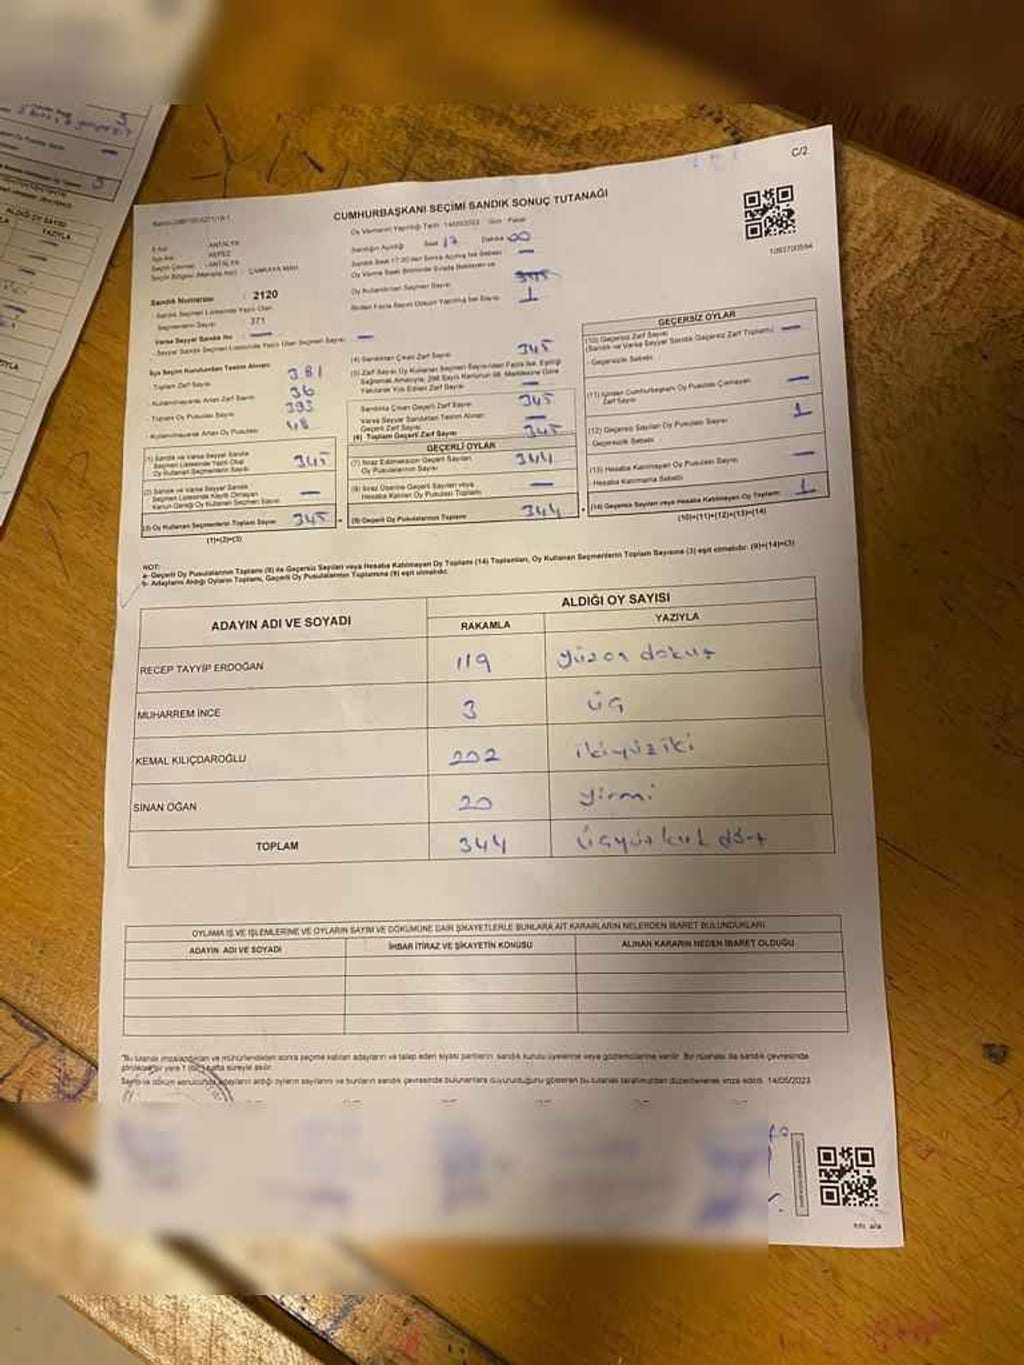 C/2
CUMHURBAŞKANI SEÇİMİ SANDIK SONUÇ TUTANAĞI
Oy Vermenin Yapıldığı Tarih : 14/05/2023 Gün : Pazar
İl Adı : ANTALYA
İlçe Adı : KEPEZ
Seçim Çevresi : ANTALYA
Seçim Bölgesi (Mahalle Adı) : ÇANKAYA MAH.
Sandığın Açıldığı Saat 17 Dakika 00
Sandık Saat 17.00'den Sonra Açılmış İse Sebebi —
Oy Verme Saati Bitiminde Sırada Bekleyen ve
Oy Kullandırılan Seçmen Sayısı
Birden Fazla Sayım Döküm Yapılmış İse Sayısı 1
1092700594
Sandık Numarası : 2120
Sandık Seçmen Listesinde Yazılı Olan
Seçmenlerin Sayısı : 371
Varsa Seyyar Sandık No : —
Seyyar Sandık Seçmen Listesinde Yazılı Olan Seçmen Sayısı : —
İlçe Seçim Kurulundan Teslim Alınan:
Toplam Zarf Sayısı 381
Kullanılmayarak Artan Zarf Sayısı 36
Toplam Oy Pusulası Sayısı 393
Kullanılmayarak Artan Oy Pusulası 48
(1) Sandık ve Varsa Seyyar Sandık
Seçmen Listesinde Yazılı Olup
Oy Kullanan Seçmenlerin Sayısı 345
(2) Sandık ve Varsa Seyyar Sandık
Seçmen Listesinde Kayıtlı Olmayan
Kanun Gereği Oy Kullanan Seçmen Sayısı —
(3) Oy Kullanan Seçmenlerin Toplam Sayısı 345
(1)+(2)=(3)
(4) Sandıktan Çıkan Zarf Sayısı 345
(5) Zarf Sayısı Oy Kullanan Seçmen Sayısından Fazla İse, Eşitliği
Sağlamak Amacıyla, 298 Sayılı Kanunun 98. Maddesine Göre
Yakılarak Yok Edilen Zarf Sayısı —
Sandıkta Çıkan Geçerli Zarf Sayısı 345
Varsa Seyyar Sandıktan Teslim Alınan
Geçerli Zarf Sayısı —
(6) Toplam Geçerli Zarf Sayısı 345
GEÇERLİ OYLAR
(7) İtiraz Edilmeksizin Geçerli Sayılan
Oy Pusulalarının Sayısı 344
(8) İtiraz Üzerine Geçerli Sayılan veya
Hesaba Katılan Oy Pusulaları Toplamı —
(9) Geçerli Oy Pusulalarının Toplamı 344
GEÇERSİZ OYLAR
(10) Geçersiz Zarf Sayısı
(Sandık ve Varsa Seyyar Sandık Geçersiz Zarf Toplamı) —
Geçersizlik Sebebi:
(11) İçinden Cumhurbaşkanı Oy Pusulası Çıkmayan
Zarf Sayısı —
(12) Geçersiz Sayılan Oy Pusulası Sayısı 1
Geçersizlik Sebebi:
(13) Hesaba Katılmayan Oy Pusulası Sayısı —
Hesaba Katılmama Sebebi:
(14) Geçersiz Sayılan veya Hesaba Katılmayan Oy Toplamı 1
(10)+(11)+(12)+(13)=(14)
NOT:
a- Geçerli Oy Pusulalarının Toplamı (9) ile Geçersiz Sayılan veya Hesaba Katılmayan Oy Toplamı (14) Toplamları, Oy Kullanan Seçmenlerin Toplam Sayısına (3) eşit olmalıdır. (9)+(14)=(3)
b- Adayların Aldığı Oyların Toplamı, Geçerli Oy Pusulalarının Toplamına (9) eşit olmalıdır.
ADAYIN ADI VE SOYADI
ALDIĞI OY SAYISI
RAKAMLA YAZIYLA
RECEP TAYYİP ERDOĞAN 119 yüzon dokuz
MUHARREM İNCE 3 üç
KEMAL KILIÇDAROĞLU 202 ikiyüziki
SİNAN OĞAN 20 yirmi
TOPLAM 344 üçyüz kırk dört
OYLAMA İŞ VE İŞLEMLERİNE VE OYLARIN SAYIM VE DÖKÜMÜNE DAİR ŞİKAYETLERLE BUNLARA AİT KARARLARIN NELERDEN İBARET BULUNDUKLARI
ADAYIN ADI VE SOYADI İHBAR İTİRAZ VE ŞİKAYETİN KONUSU ALINAN KARARIN NEDEN İBARET OLDUĞU
"Bu tutanak imzalandıktan ve mühürlendikten sonra seçime katılan adayların ve talep eden siyasi partilerin sandık kurulu üyelerine veya gözlemcilerine verilir. Bir nüshası da sandık çevresinde
görülecek bir yere 1 (bir) hafta süreyle asılır.
Sayım ve döküm sonucunda adayların aldığı oyların sayılarını ve bunların sandık çevresinde bulunanlara duyurulduğunu gösteren bu tutanak tarafımızdan düzenlenerek imza edildi. 14/05/2023